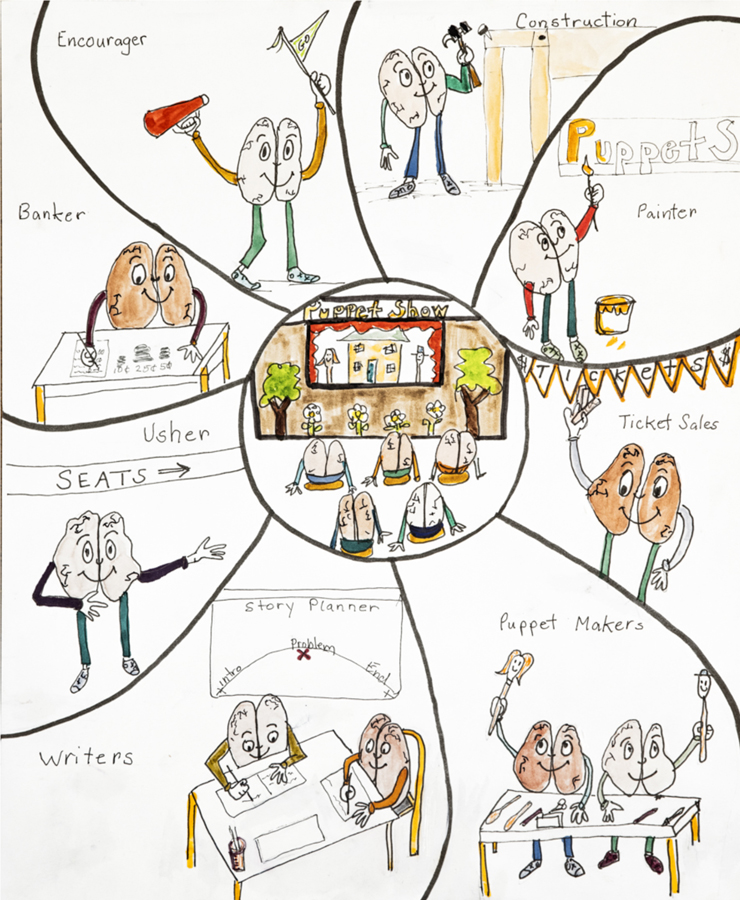 Encourager
GO
Construction
Puppet S
Painter
Banker
10¢ 25¢ 5¢
Puppet Show
$ TICKETS $
Ticket Sales
Usher
SEATS →
Story Planner
Problem
X
Intro
End
Writers
Puppet Makers